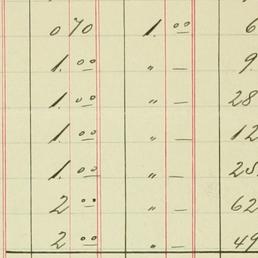 0 70 1. 00 6
1. 00 " — 9
1. 00 " — 28
1. 00 " — 12
1. 00 " — 25
2 00 " — 62
2 00 " — 49